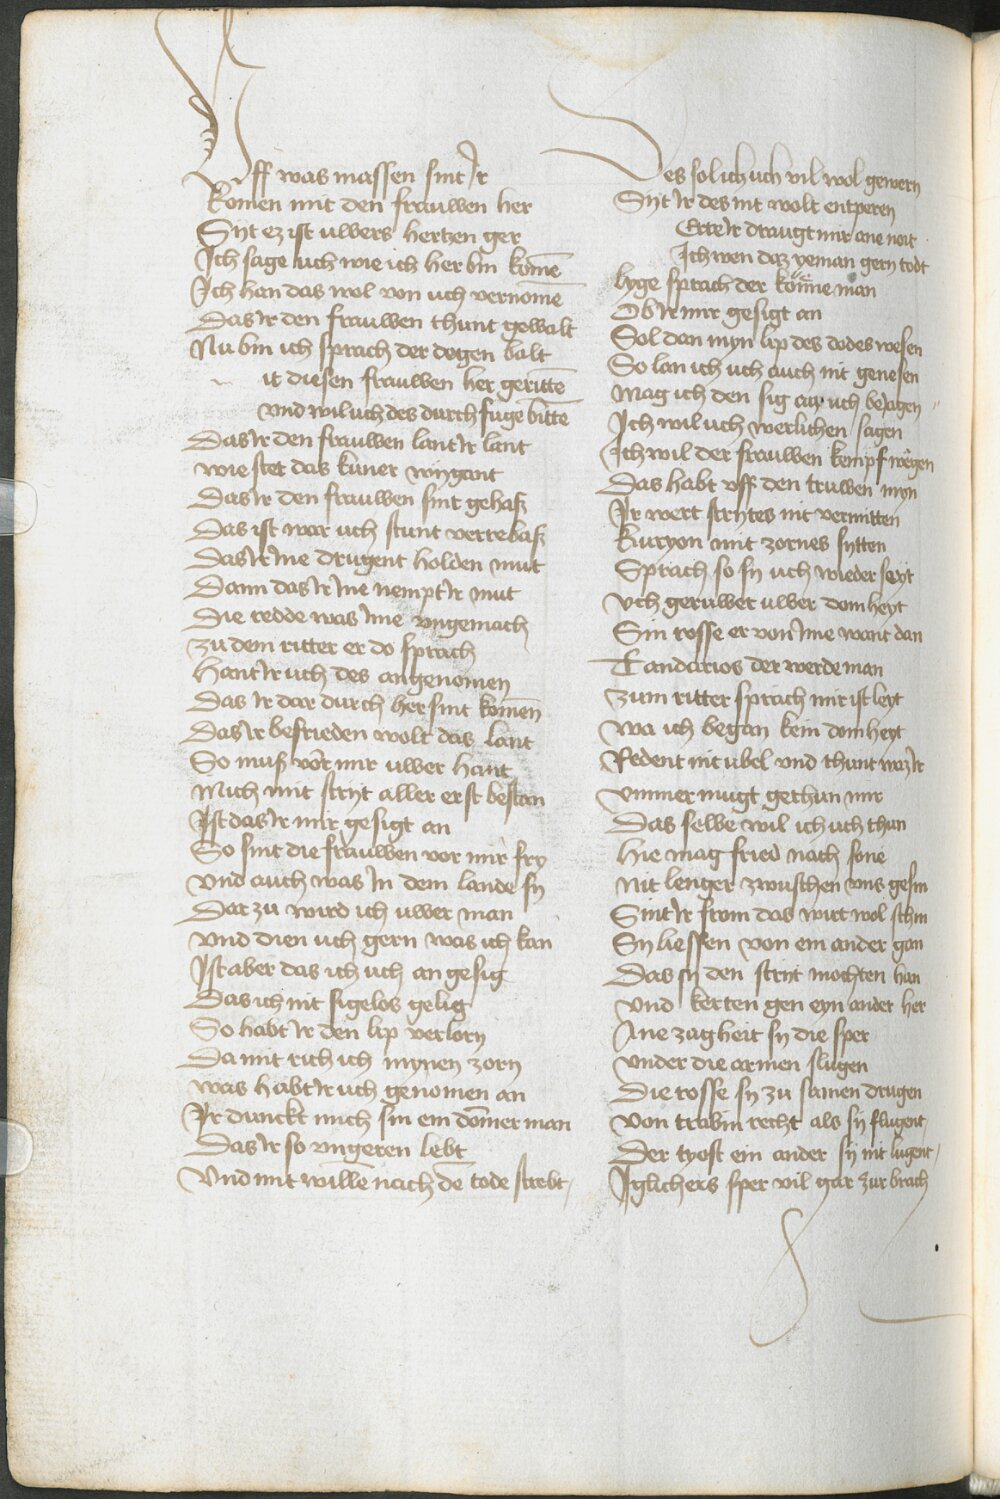 Uff was massen sint ir
Komen mit den frauwen her
Sijt ez ist uwers hertzen ger
Ich sage uch wie ich her bin komē
Ich han das wol von uch vernomē
Das ir den frauwen thunt gewalt
Nu bin ich sprach der degen balt
it diesen frauwen her geritt̄e
vnd wil uch des durch fuge bittē
Das ir den frauwen lant ir lant
wie stet das kuner wygant
Das ir den frauwen sint gehaß
Das ist war uch stunt verre baß
Das ir ine drugent holden mut
Dann das ir ine nempt ir mut
Die redde was ime vngemach
zu dem ritter er do sprach
Hant ir uch des angenomen
Das ir dar durch her sint komen
Das ir befrieden wolt das lant
So muß vor mir uwer hant
Mich mit strijt aller erst bestan
Ist das ir mir gesigt an
So sint die frauwen vor mir fry
vnd auch was in dem lande sy
Dar zu wird ich uwer man
vnd dien uch gern was ich kan
Ist aber das ich uch an gesig
Das ich nit sigelos gelig
So habt ir den lip verlorn
Da mit rich ich mynen zorn
was habt ir uch genomen an
Ir dunckt mich sin ein dōmer man
Das ir so vngeren lebt
Vnd mit willē nach dē tode strebt
Des sol ich uch vil wol gewern
Sijt ir des nit wolt entperen
Erte ir draugt mir ane not
Ich wen daz yeman gern todt
lyge sprach der kōnne man
Ob ir mir gesigt an
Sol dan myn lip des dodes wesen
So lan ich uch auch nit genesen
Mag ich den sig an uch bejagen
Ich wil uch werlichen sagen
Ich wil der frauwen kempf wegen
Das habt vff den truwen myn
Ir wert strytes nit vermitten
Kuryon mit zornes sytten
Sprach so sy uch wieder seyt
vch geruwet uwer domheyt
Sin rosse er von ime want dan
Tandarios der werde man
zum ritter sprach mir ist leyt
wa ich began kein domheyt
Redent nit ubel vnd thunt waz ir
vmmer mugt gethun mir
Das selbe wil ich uch thun
Hie mag fried nach sone
nit lenger zwuschen vns gesin
Sint ir from das wirt wol schin
Sy liessen von ein ander gan
Das sy den strijt mochten han
vnd kerten gen eyn ander her
Ane zagheit sy die sper
vnder die armen slugen
Die rosse sy zu samen drugen
von trabin recht als sy flugent
Der tyost ein ander sy nit lugent
Iglichers sper vil gar zur brach